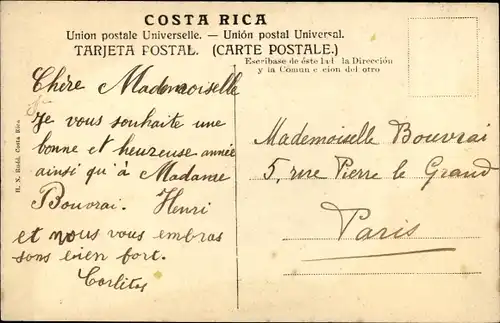 COSTA RICA
Union postale Universelle. — Unión postal Universal.
TARJETA POSTAL. (CARTE POSTALE.)
Escribase de éste lad la Dirección
y la Comun c ción del otro
Chère Mademoiselle
Je vous souhaite une
bonne et heuzeuse année
ainsi qu'à Madame
Bouvrai. Henri
et nous vous embras
sons bien fort.
Carlitos
Mademoiselle Bouvrai
5, rue Pierre le Grand
Paris
H. N. Rudd, Costa Rica